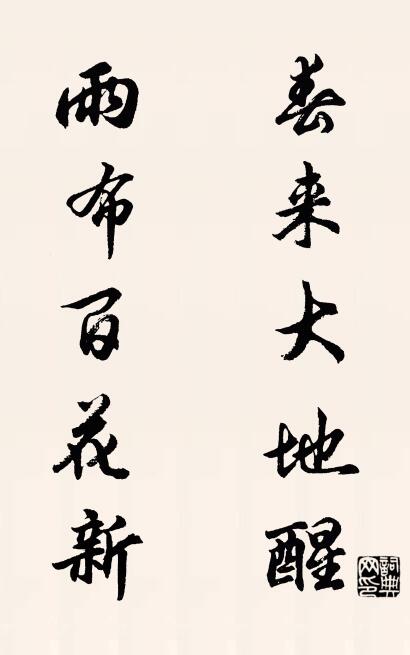 春来大地醒
雨布百花新
詞典网印